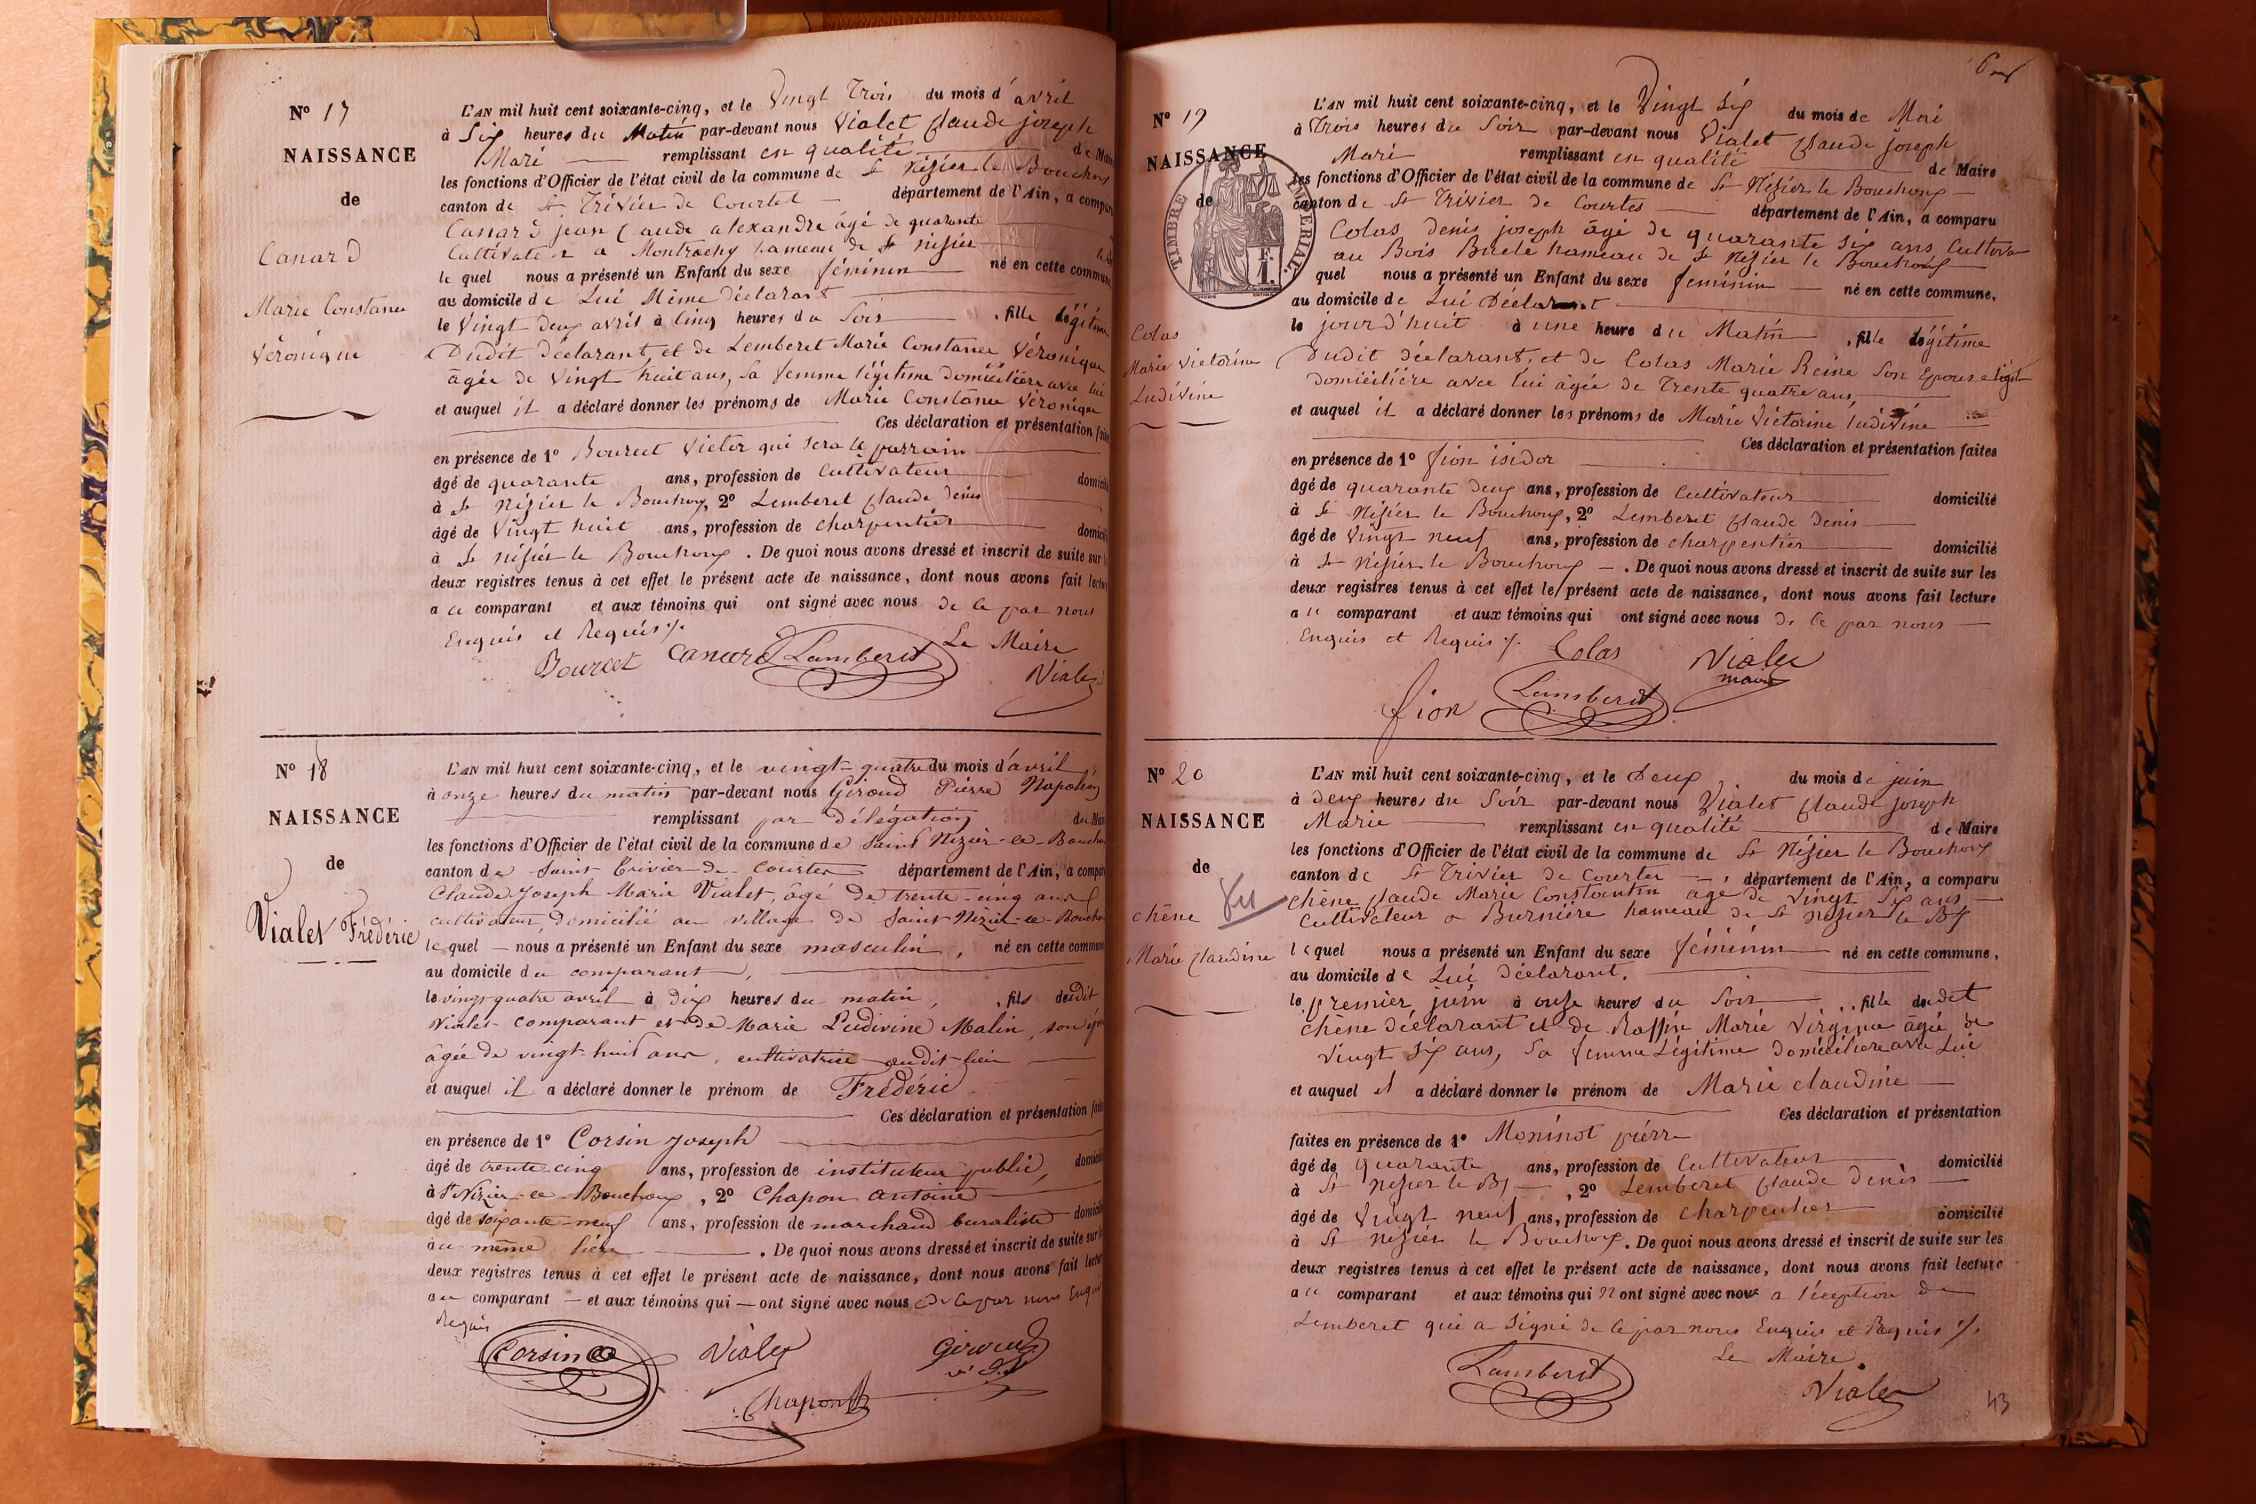 N° 17
NAISSANCE
de
Canard
Marie Constance
Véronique
L'AN mil huit cent soixante-cinq, et le Vingt Trois du mois d'avril
à Six heures du Matin par-devant nous Vialet Claude joseph
Marie remplissant en qualité de Mai
les fonctions d'Officier de l'état civil de la commune de St Nésier le Bouchoux
canton de St Trivier de Courtet département de l'Ain, a compar
Canard jean Claude alexandre âgé de quarante
Cultivateur a Montrachy hameau de St nesier
le quel nous a présenté un Enfant du sexe féminin né en cette commune
au domicile de Lui Même déclarant
le Vingt deux avril à Cinq heures du Soir , fille légitime
Dudit déclarant, et de Lemberet Marie Constance Véronique
âgée de Vingt huit ans, sa femme légitime domiciliére avec lui
et auquel il a déclaré donner les prénoms de Marie Constance Véronique
Ces déclaration et présentation faite
en présence de 1° Bourcet Victor qui sera le parrain
âgé de quarante ans, profession de Cultivateur domicili
à St Nésier le Bouchoux, 2° Lemberet Claude Denis
âgé de Vingt huit ans, profession de charpentier domicili
à St nésier le Bouchoux. De quoi nous avons dressé et inscrit de suite sur l
deux registres tenus à cet effet le présent acte de naissance, dont nous avons fait lectur
a ce comparant et aux témoins qui ont signé avec nous de ce par nous
Enquis et Requis ./.
Le Maire
Bourcet Canard Lamberet
Vialet
N° 18
NAISSANCE
de
Vialet Frédéric
L'AN mil huit cent soixante-cinq, et le vingt-quatre du mois d'avril,
à onze heures du matin par-devant nous Giroud Pierre Napoléon
remplissant par délégation du Mai
les fonctions d'Officier de l'état civil de la commune de Saint Nizier-le-Boucho
canton de Saint-Trivier-de-Courtes département de l'Ain, a compar
Claude Joseph Marie Vialet, âgé de trente-cinq ans
cultivateur, domicilié au village de Saint-Nizier-le-Boucho
lequel — nous a présenté un Enfant du sexe masculin, né en cette commune
au domicile du comparant,
le vingt quatre avril à dix heures du matin, , fils dudit
Vialet comparant et de Marie Ludivine Malin, son ép
âgée de vingt-huit ans, cultivatrice audit lieu
et auquel il a déclaré donner le prénom de Frédéric
Ces déclaration et présentation faite
en présence de 1° Corsin Joseph
âgé de trente-cinq ans, profession de instituteur public, domicil
à St Nizier-le-Bouchoux, 2° Chapon Antoine
âgé de soixante-neuf ans, profession de marchand buraliste domicili
au même lieu. De quoi nous avons dressé et inscrit de suite sur l
deux registres tenus à cet effet le présent acte de naissance, dont nous avons fait lectur
au comparant — et aux témoins qui — ont signé avec nous de ce par nous Enqui
Requis
Corsin Vialet Giroud
Chapon
N° 19
NAISSANCE
de
TIMBRE IMPERIAL
Colas
Marie Victorine
Ludivine
L'AN mil huit cent soixante-cinq, et le Vingt Six du mois de Mai
à Trois heures du Soir par-devant nous Vialet Claude joseph
Marie remplissant en qualité de Maire
les fonctions d'Officier de l'état civil de la commune de St Nésier le Bouchoux
canton de St Trivier de Courtes département de l'Ain, a comparu
Colas denis joseph âgé de quarante six ans Cultiva
au Bois Brulé hameau de St Nésier le Bouchoux
quel nous a présenté un Enfant du sexe feminin né en cette commune,
au domicile de Lui Déclarant
le jourd'huit à une heure du Matin , fille légitime
Dudit déclarant, et de Colas Marie Reine Son Epouse légit
domiciliére avec lui âgée de Trente quatre ans,
et auquel il a déclaré donner les prénoms de Marie Victorine Ludivine
Ces déclaration et présentation faites
en présence de 1° fion isidor
âgé de quarante deux ans, profession de Cultivateur domicilié
à St Nésier le Bouchoux, 2° Lemberet Claude Denis
âgé de Vingt neuf ans, profession de charpentier domicilié
à St Nésier le Bouchoux — . De quoi nous avons dressé et inscrit de suite sur les
deux registres tenus à cet effet le présent acte de naissance, dont nous avons fait lecture
a ce comparant et aux témoins qui ont signé avec nous de ce par nous
Enquis et Requis ./. Colas Vialet
maire
fion Lamberet
N° 20
NAISSANCE
de
Chêne
Marie Claudine
L'AN mil huit cent soixante-cinq, et le Deux du mois de juin
à deux heures du Soir par-devant nous Vialet Claude joseph
Marie remplissant en qualité de Maire
les fonctions d'Officier de l'état civil de la commune de St Nésier le Bouchoux
canton de St Trivier de Courtes département de l'Ain, a comparu
Chêne Claude Marie Constantin âgé de Vingt Six ans
Cultivateur a Burniére hameau de St nésier le Bx
lequel nous a présenté un Enfant du sexe féminin né en cette commune,
au domicile de Lui déclarant.
le premier juin à onze heures du Soir , fille dudit
Chêne déclarant et de Raffin Marie Virginie âgée de
Vingt Six ans, Sa femme Légitime domiciliére avec Lui
et auquel il a déclaré donner le prénom de Marie Claudine
Ces déclaration et présentation
faites en présence de 1° Moninot pierre
âgé de quarante ans, profession de Cultivateur domicilié
à St nésier le Bx, 2° Lemberet Claude Denis
âgé de Vingt neuf ans, profession de charpentier domicilié
à St nésier le Bouchoux. De quoi nous avons dressé et inscrit de suite sur les
deux registres tenus à cet effet le présent acte de naissance, dont nous avons fait lecture
a ce comparant et aux témoins qui n ont signé avec nous a l'éception de
Lemberet qui a Signé de ce par nous Enquis et Requis ./.
Le Maire.
Lamberet Vialet
43